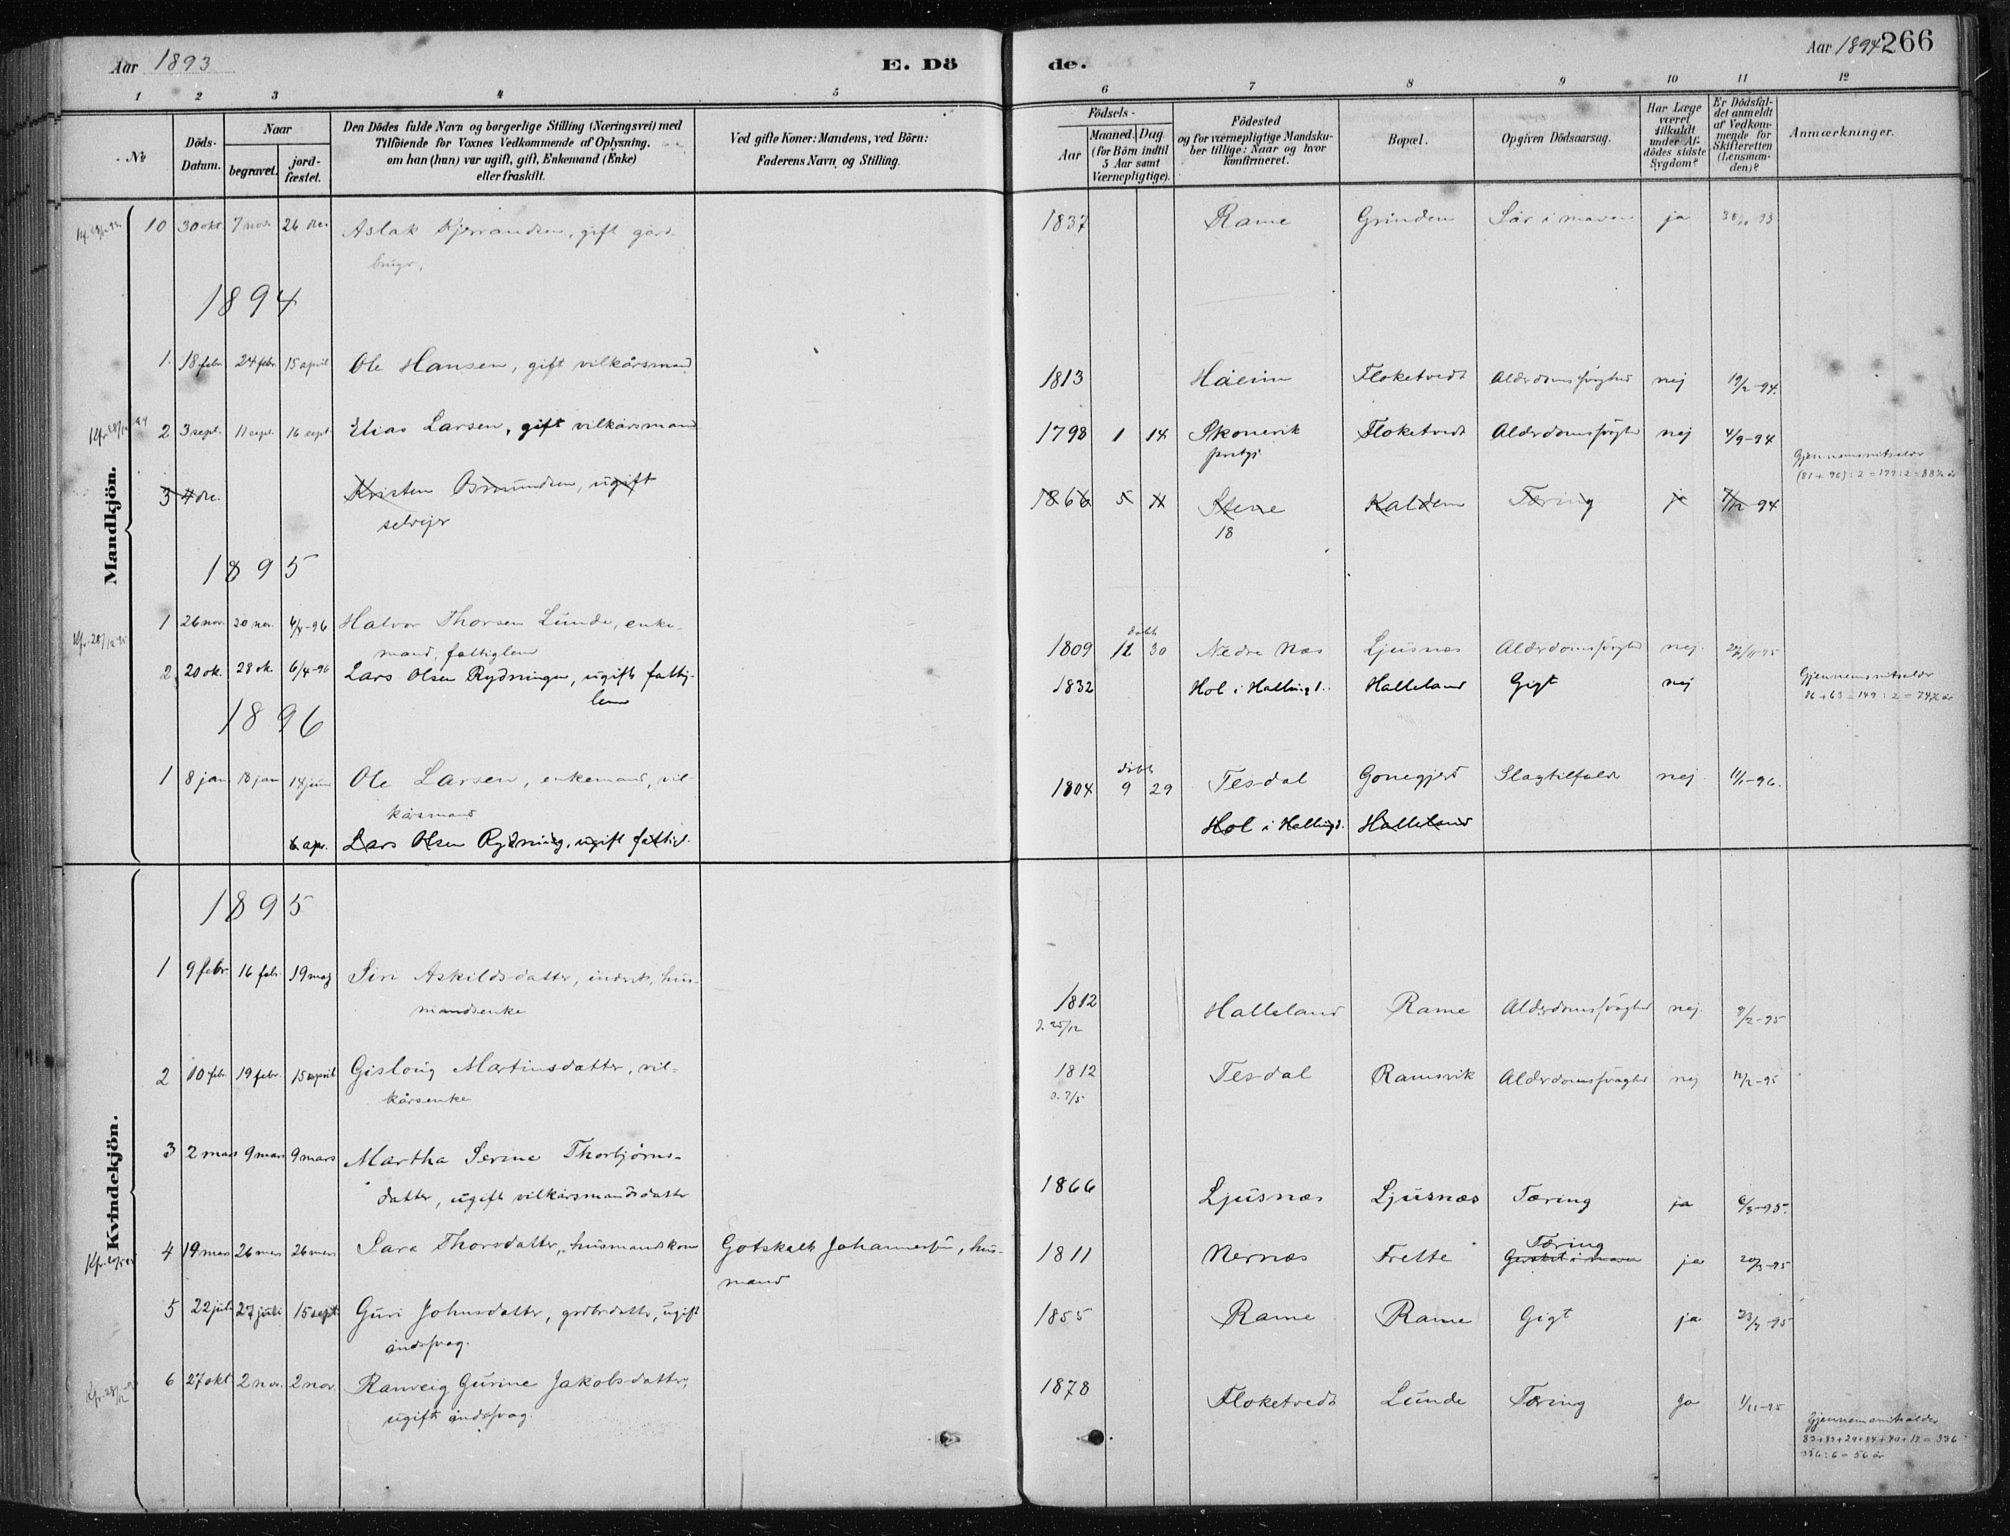 Aar 1893
E. Dö
de.
Aar 1894 266
1 2 3 4 5 6 7 8 9 10 11 12
No
Döds-
Datum.
Naar
begravet.
jord-
fæstet.
Den Dödes fulde Navn og borgerlige Stilling (Næringsvei) med
Tilföiende for Voxnes Vedkommende af Oplysning.
om han (hun) var ugift, gift, Enkemand (Enke)
eller fraskilt.
Ved gifte Koner: Mandens, ved Börn:
Faderens Navn og Stilling.
Födsels-
Aar
Maaned. Dag.
(for Börn indtil
5 Aar samt
Værnepligtige).
Födested
og for værnepligtige Mandsku-
ber tillige: Naar og hvor
konfirmeret.
Bopæl.
Opgiven Dödsaarsag.
Har Læge
været
tilkaldt
under Af-
dödes sidste
Sygdom?
Er Dödsfal-
det anmeldt
af Vedkom-
mende for
Skifteretten
(Lensman-
den)?
Anmærkninger.
Mandkjön.
10 30 okt. 7 nov. 26 Aslak gift gård- 1837 Rame Grinden Sår i maven ja
brugr.
1894
1. 18 febr. 24 febr. 15 april Ole Hansen, gift vilkårsmand 1813 Håeim Floketvedt nej 19/2-94.
2 3 sept. 11 sept. 16 sept. Elias Larsen, gift vilkårsmand 1798 1 14 Skonevik Floketvedt nej 4/9-94
prstgj
Gjennemsnitsalder
(81 + 96) : 2 = 177 : 2 = 88½ år
3 4 de. Kristen Osmundsen, ugift 1866 5 Stene Kaldem Tæring ja 7/12-94
selvejer 18
1895
1 26 nov. 30 nov. 6/4-96 Halvor Thorsen Lunde, enke- 1809 12 30 Nedre Næs Ljusnes nej
mand, fattiglem
2 20 ok. 28 ok. 6/4-96 Lars Olsen Rydningen, ugift fattig- 1832 Hol i Hallingd. Halleland Gigt nej
lem
Gjennemsnitsalder
86 + 63 = 149 : 2 = 74½ år
1896
1 8 jan 18 jan 14 juni Ole Larsen, enkemand, vil- 1804 9 29 Tesdal Gonegjerd Slagtilfælde nej 11/1-96.
kårsmand
6 apr. Lars Olsen Rydning, ugift fattigl. Hol i Hallingd. Halleland
Kvindekjön.
1895
1 9 febr. 16 febr. 19 maj Siri Askildsdatter, inderst, hus- 1812 Halleland Rame nej. 9/2-95
mandsenke
d. 25/12
2 10 febr. 19 febr. 15 april Gisloug Martinsdatter, vil- 1812 Tesdal Ramsvik nej 12/2-95
kårsenke
d. 7/5
3 2 mars 9 mars 9 mars Martha Serine Thorbjørns- 1866 Ljusnæs Ljusnæs Tæring ja 6/3-95.
datter, ugift vilkårsmandsdatter
4 19 mars 26 mars 26 mars Sara Thorsdatter, husmandskone Gotskalk Johannessen, hus- 1811 Nernæs Frette Tæring ja 20/3-95
mand
5 22 juli 27 juli 15 sept. Guri Johnsdatter, grdbrdattr, ugift 1855 Rame Rame Gigt ja 23/7-95
åndssvag.
6 27 okt 2 nov. 2 nov. Ranveig Gurine Jakobsdatter, 1878 Floketvedt Lunde Tæring ja 1/11-95
ugift åndssvag.
Gjennemsnitsalder
83+83+29+84+40+17 = 336
336 : 6 = 56 år